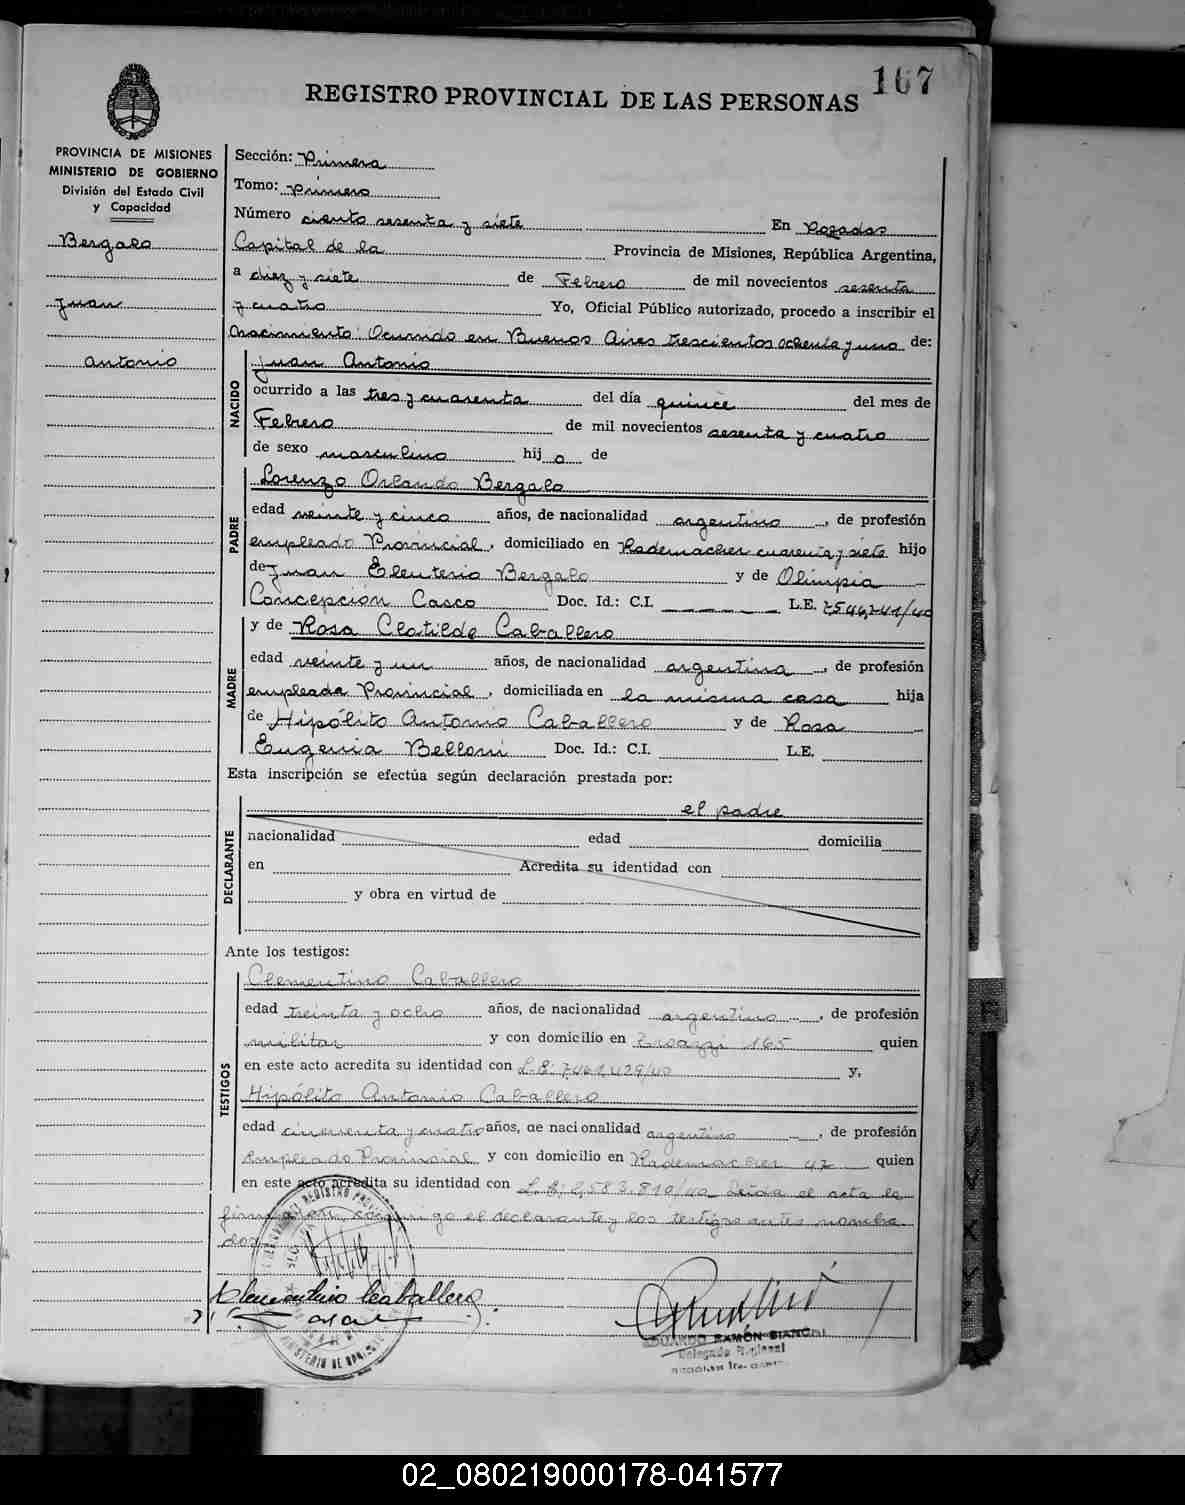 167
REGISTRO PROVINCIAL DE LAS PERSONAS
PROVINCIA DE MISIONES
MINISTERIO DE GOBIERNO
División del Estado Civil
y Capacidad
Bergalo
Juan
Antonio
Sección: Primera
Tomo: Primero
Número ciento sesenta y siete En Posadas
Capital de la Provincia de Misiones, República Argentina,
a diez y siete de Febrero de mil novecientos sesenta
y cuatro Yo, Oficial Público autorizado, procedo a inscribir el
Nacimiento: Ocurrido en Buenos Aires trescientos ochenta y uno de:
NACIDO
Juan Antonio
ocurrido a las tres y cuarenta del día quince del mes de
Febrero de mil novecientos sesenta y cuatro
de sexo masculino hijo de
PADRE
Lorenzo Orlando Bergalo
edad veinte y cinco años, de nacionalidad argentino, de profesión
empleado Provincial, domiciliado en Rademacher cuarenta y siete hijo
de Juan Eleuterio Bergalo y de Olimpia
Concepción Casco Doc. Id.: C.I. L.E. 7.546.241/40
y de Rosa Clotilde Caballero
MADRE
edad veinte y un años, de nacionalidad argentina, de profesión
empleada Provincial, domiciliada en la misma casa hija
de Hipólito Antonio Caballero y de Rosa
Eugenia Belloni Doc. Id.: C.I. L.E.
Esta inscripción se efectúa según declaración prestada por:
el padre
DECLARANTE
nacionalidad edad domicilia
en Acredita su identidad con
y obra en virtud de
Ante los testigos:
TESTIGOS
Clementino Caballero
edad treinta y ocho años, de nacionalidad argentino, de profesión
militar y con domicilio en 165 quien
en este acto acredita su identidad con L.E: 7.461.429/40 y,
Hipólito Antonio Caballero
edad cincuenta y cuatro años, de nacionalidad argentino, de profesión
Empleado Provincial y con domicilio en Rademacher 47 quien
en este acto acredita su identidad con L.E: 2.583.810/40 Leída el acta la
firmaron conmigo el declarante y los testigos antes nombra-
dos
Clementino Caballero
EDUARDO RAMÓN BIANCHI
Delegado Regional
02_080219000178-041577